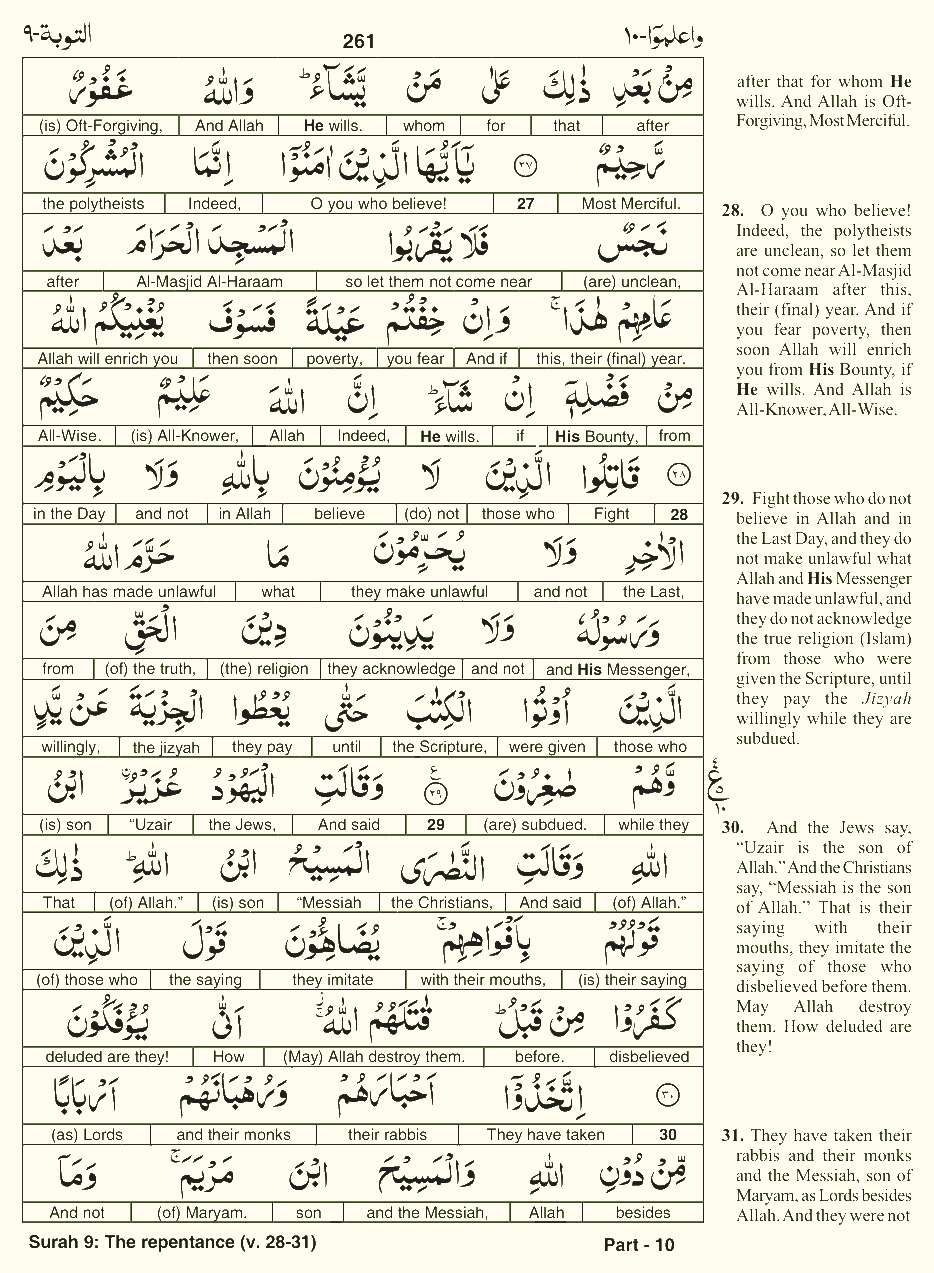 التوبة-٩
261
واعلموا-١٠
مِنْۢ بَعْدِ ذٰلِكَ عَلٰى مَنْ يَّشَآءُ ؕ وَاللّٰهُ غَفُوْرٌ
(is) Oft-Forgiving, And Allah He wills. whom for that after
رَّحِيْمٌ ﴿۲۷﴾ يٰۤاَيُّهَا الَّذِيْنَ اٰمَنُوْۤا اِنَّمَا الْمُشْرِكُوْنَ
the polytheists Indeed, O you who believe! 27 Most Merciful.
نَجَسٌ فَلَا يَقْرَبُوا الْمَسْجِدَ الْحَرَامَ بَعْدَ
after Al-Masjid Al-Haraam so let them not come near (are) unclean,
عَامِهِمْ هٰذَا ۚ وَاِنْ خِفْتُمْ عَيْلَةً فَسَوْفَ يُغْنِيْكُمُ اللّٰهُ
Allah will enrich you then soon poverty, you fear And if this, their (final) year.
مِنْ فَضْلِهٖۤ اِنْ شَآءَ ؕ اِنَّ اللّٰهَ عَلِيْمٌ حَكِيْمٌ
All-Wise. (is) All-Knower, Allah Indeed, He wills. if His Bounty, from
﴿۲۸﴾ قَاتِلُوا الَّذِيْنَ لَا يُؤْمِنُوْنَ بِاللّٰهِ وَلَا بِالْيَوْمِ
in the Day and not in Allah believe (do) not those who Fight 28
الْاٰخِرِ وَلَا يُحَرِّمُوْنَ مَا حَرَّمَ اللّٰهُ
Allah has made unlawful what they make unlawful and not the Last,
وَرَسُوْلُهٗ وَلَا يَدِيْنُوْنَ دِيْنَ الْحَقِّ مِنَ
from (of) the truth, (the) religion they acknowledge and not and His Messenger,
الَّذِيْنَ اُوْتُوا الْكِتٰبَ حَتّٰى يُعْطُوا الْجِزْيَةَ عَنْ يَّدٍ
willingly, the jizyah they pay until the Scripture, were given those who
وَّهُمْ صٰغِرُوْنَ ﴿۲۹﴾ ع وَقَالَتِ الْيَهُوْدُ عُزَيْرُ ۨ ابْنُ
(is) son “Uzair the Jews, And said 29 (are) subdued. while they
اللّٰهِ وَقَالَتِ النَّصٰرَى الْمَسِيْحُ ابْنُ اللّٰهِ ؕ ذٰلِكَ
That (of) Allah.” (is) son “Messiah the Christians, And said (of) Allah.”
قَوْلُهُمْ بِاَفْوَاهِهِمْ ۚ يُضَاهِـُٔوْنَ قَوْلَ الَّذِيْنَ
(of) those who the saying they imitate with their mouths, (is) their saying
كَفَرُوْا مِنْ قَبْلُ ؕ قٰتَلَهُمُ اللّٰهُ ۚ اَنّٰى يُؤْفَكُوْنَ
deluded are they! How (May) Allah destroy them. before. disbelieved
﴿۳۰﴾ اِتَّخَذُوْۤا اَحْبَارَهُمْ وَرُهْبَانَهُمْ اَرْبَابًا
(as) Lords and their monks their rabbis They have taken 30
مِّنْ دُوْنِ اللّٰهِ وَالْمَسِيْحَ ابْنَ مَرْيَمَ ۚ وَمَاۤ
And not (of) Maryam. son and the Messiah, Allah besides
after that for whom He
wills. And Allah is Oft-
Forgiving, Most Merciful.
28. O you who believe!
Indeed, the polytheists
are unclean, so let them
not come near Al-Masjid
Al-Haraam after this,
their (final) year. And if
you fear poverty, then
soon Allah will enrich
you from His Bounty, if
He wills. And Allah is
All-Knower, All-Wise.
29. Fight those who do not
believe in Allah and in
the Last Day, and they do
not make unlawful what
Allah and His Messenger
have made unlawful, and
they do not acknowledge
the true religion (Islam)
from those who were
given the Scripture, until
they pay the Jizyah
willingly while they are
subdued.
ع
٤
٥
١٠
30. And the Jews say,
“Uzair is the son of
Allah.” And the Christians
say, “Messiah is the son
of Allah.” That is their
saying with their
mouths, they imitate the
saying of those who
disbelieved before them.
May Allah destroy
them. How deluded are
they!
31. They have taken their
rabbis and their monks
and the Messiah, son of
Maryam, as Lords besides
Allah. And they were not
Surah 9: The repentance (v. 28-31)
Part - 10